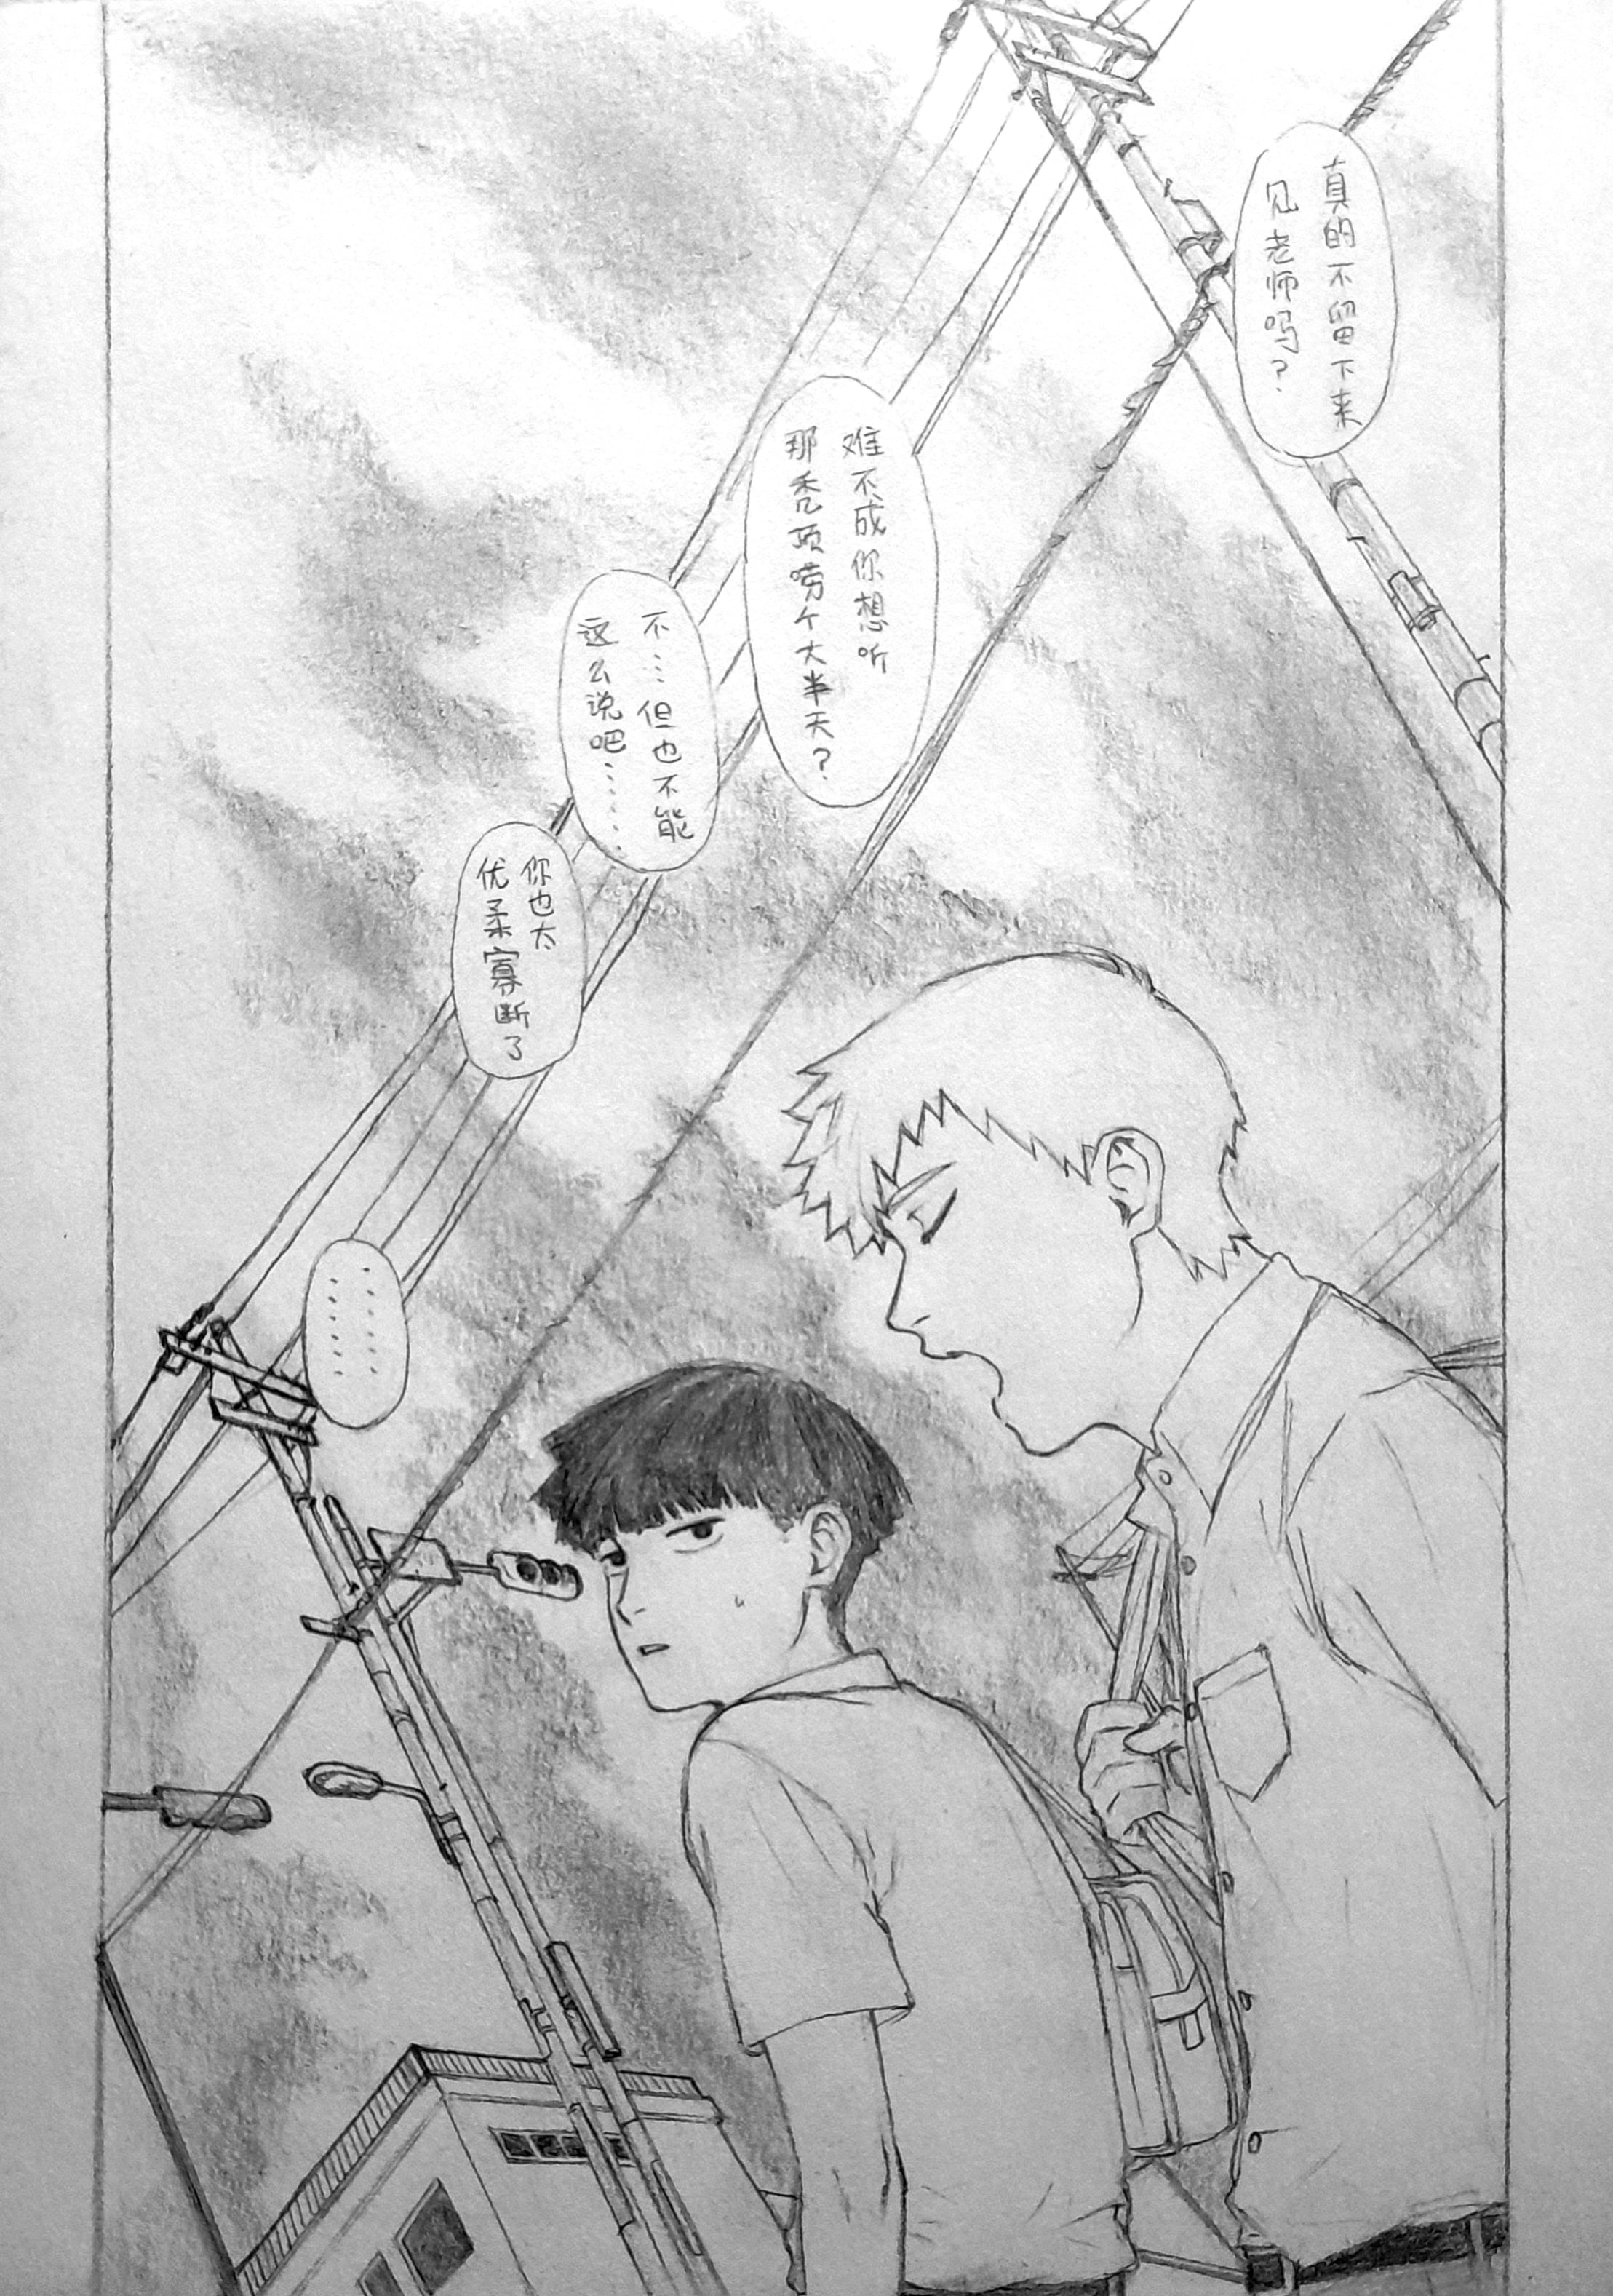 真的不留下来
见老师吗？
难不成你想听
那秃顶唠个大半天？
不……但也不能
这么说吧………
你也太
优柔寡断了
…………